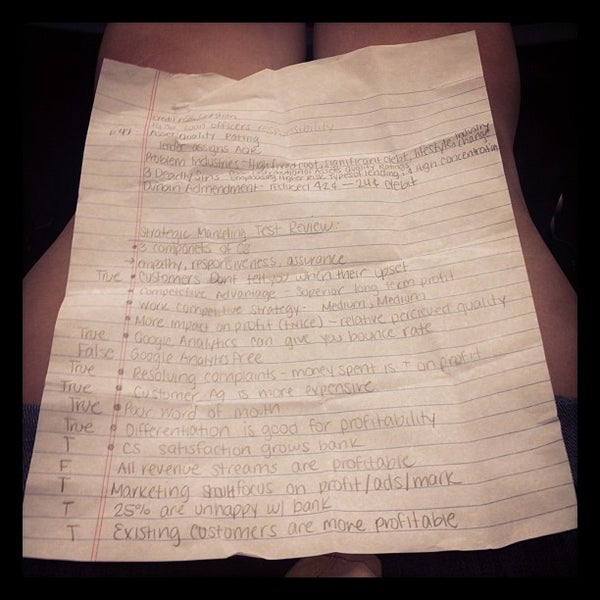 loan officers responsibility
Asset Quality Rating
lender assigns AQR
Problem Industries - High fixed cost, significant debt, lifestyle change, industry
3 Deadly Sins - higher risk types of lending, & High concentration
Durbin Admendment - reduced 42¢ — 24¢ debit
Strategic Marketing Test Review:
3 componets of CS
→ empathy, responsiveness, assurance
True • Customers Dont tell you when their upset
• Competetive Advantage - Superior long term profit
• Work competitive strategy - Medium, Medium
• More impact on profit (twice) - relative percieved quality
True • Google Analytics can give you bounce rate
False Google Analytis Free
True • Resolving complaints - money spent is + on profit
True • Customer Aq is more expensive
True • Poor word of mouth
True • Differentiation is good for profitability
T • CS satisfaction grows bank
F All revenue streams are profitable
T Marketing focus on profit/ads/mark
T 25% are unhappy w/ bank
T Existing customers are more profitable